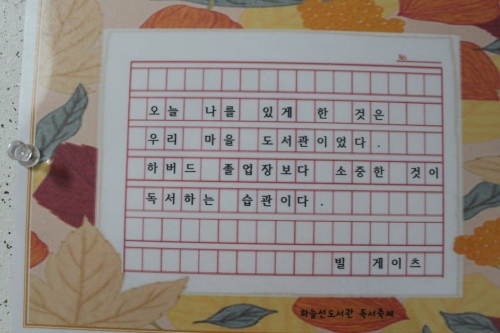 No.
오늘 나를 있게 한 것은
우리 마을 도서관이었다.
하버드 졸업장보다 소중한 것이
독서하는 습관이다.
빌 게이츠
하늘선도서관 독서축제